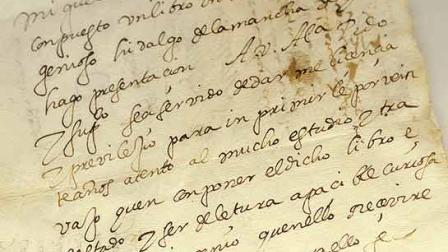 mi que
conpuesto un libro in
genioso hidalgo de la mancha d
hago presentacion A V. Al.a Pido
y sup.co sea servido de darme licencia
y previlegio para inprimirle por vein
te años atento al mucho estudio y tra
vajo quen conponer el dicho libro e
y ser de letura apacible curiosa
quenello recevire